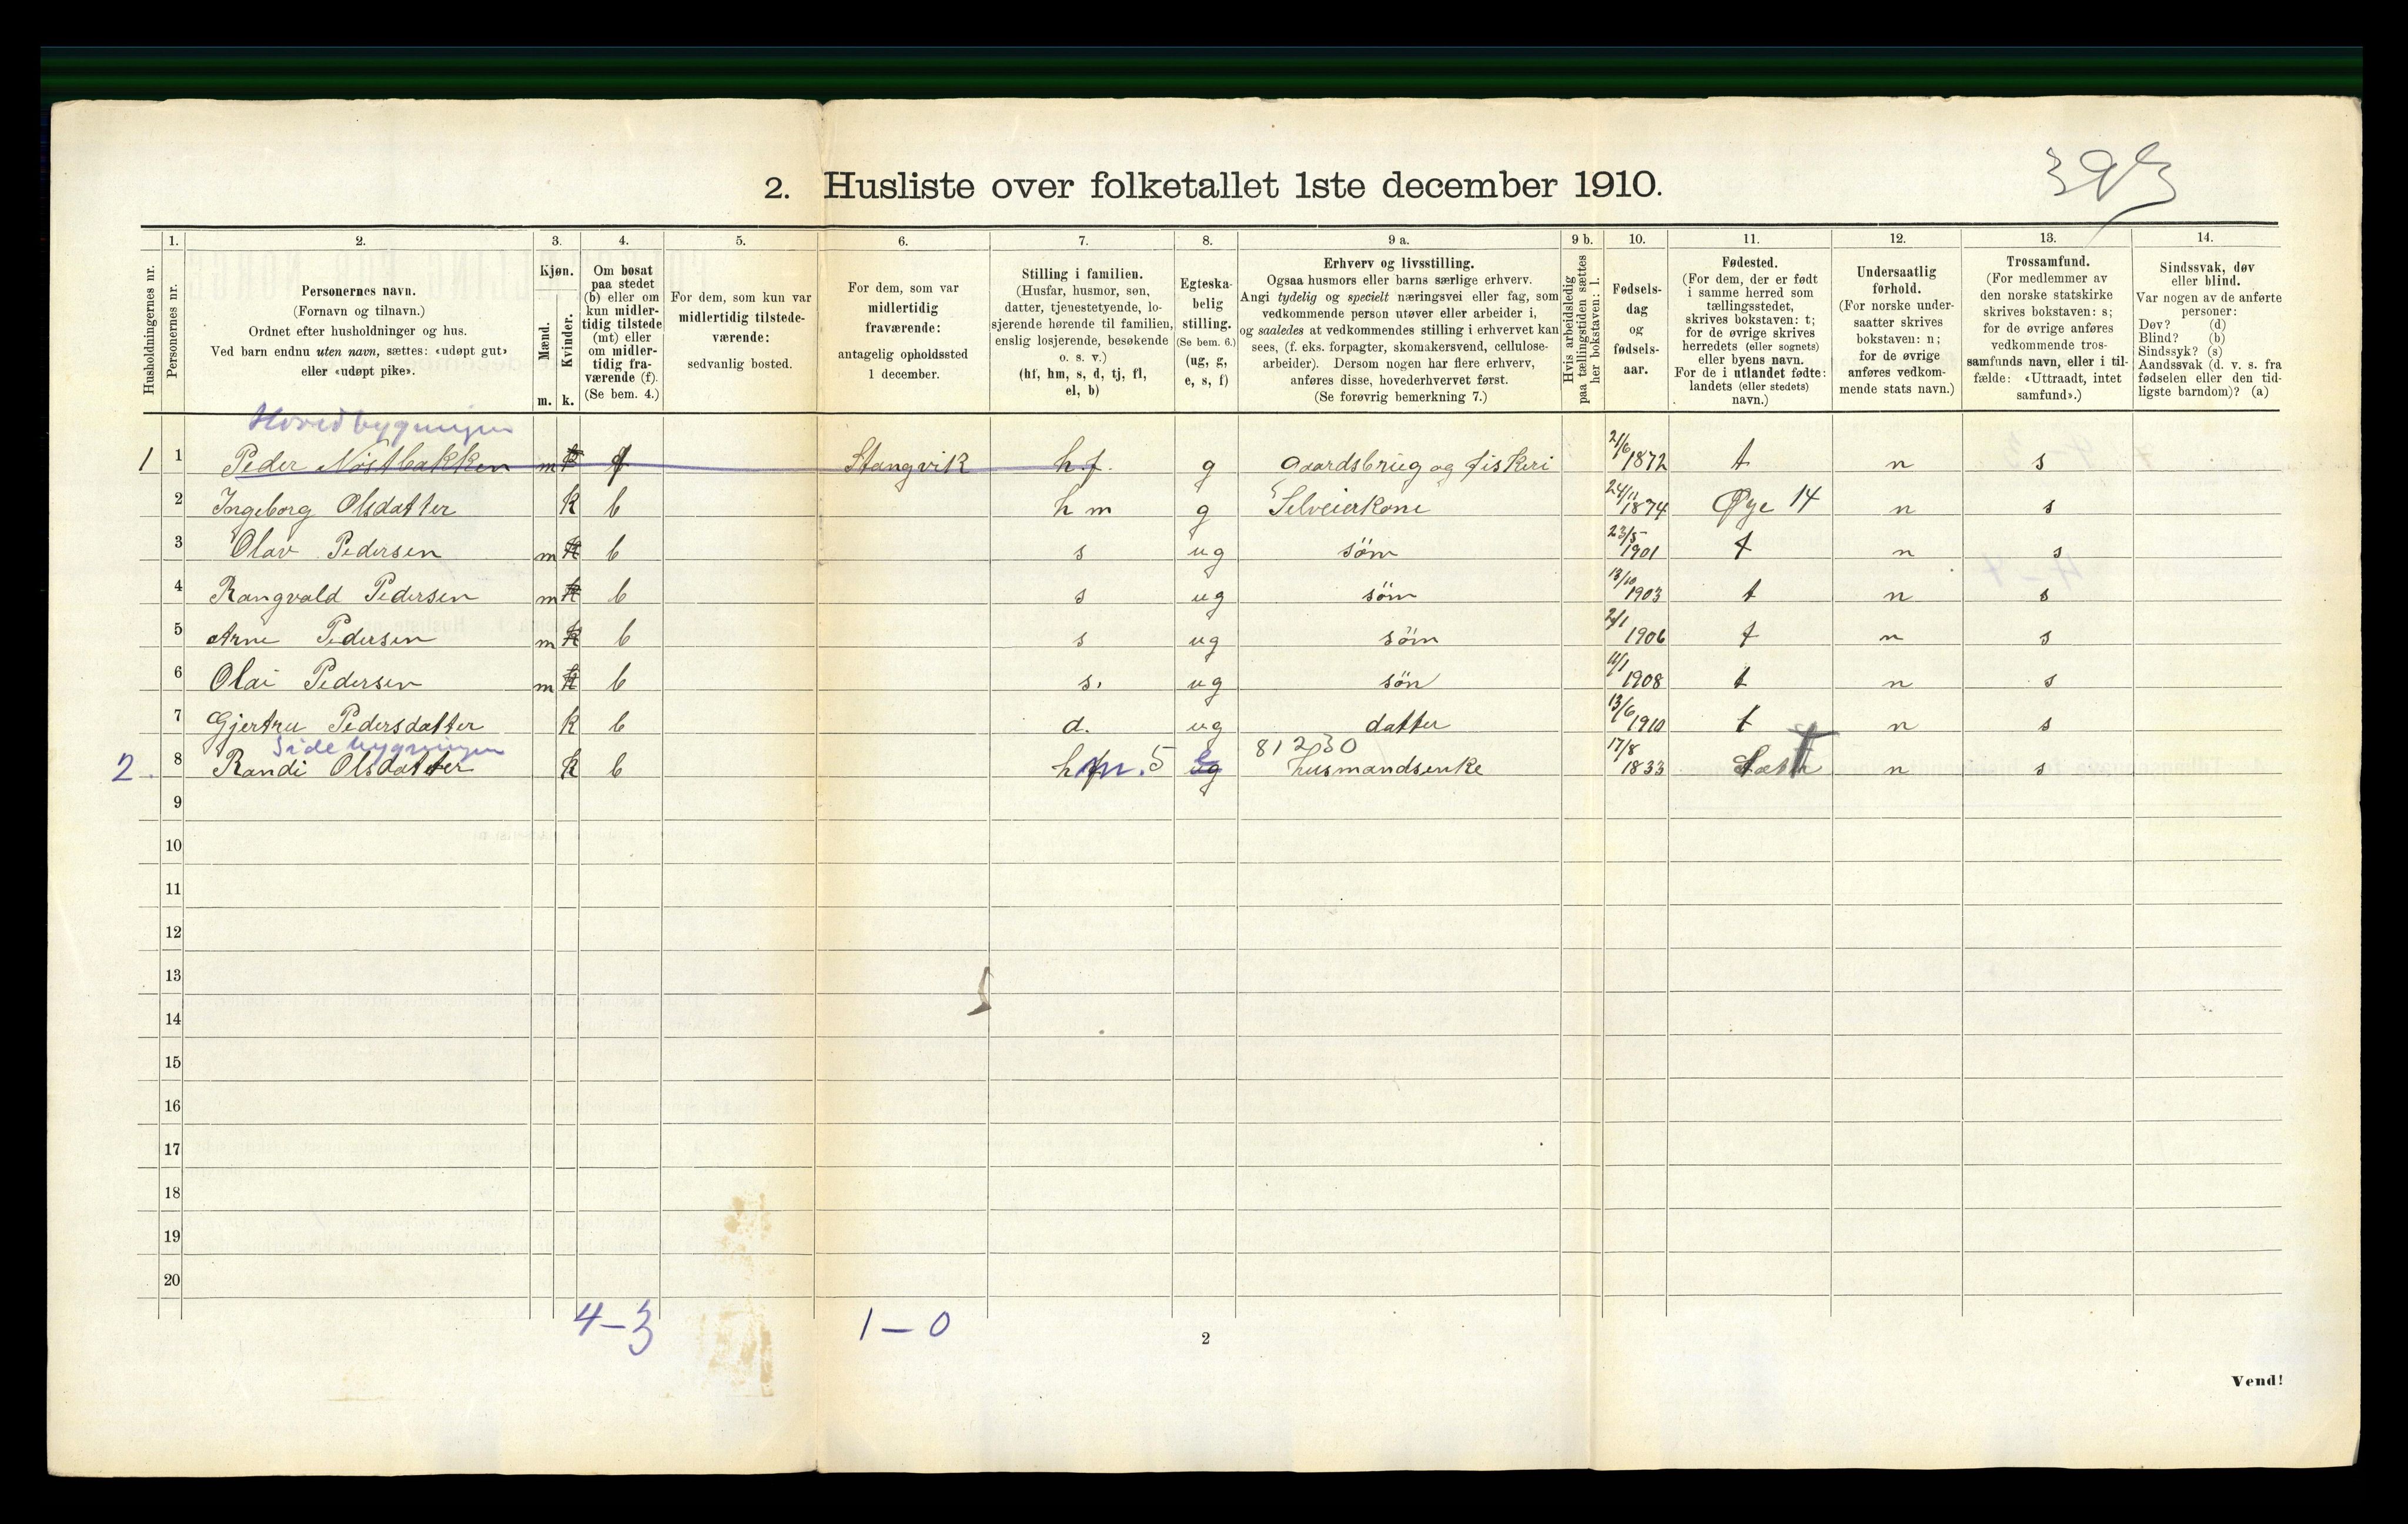 2. Husliste over folketallet 1ste december 1910.
1. 2. 3. 4. 5. 6. 7. 8. 9 a. 9 b. 10. 11. 12. 13. 14.
Husholdningernes nr.
Personernes nr.
Personernes navn.
(Fornavn og tilnavn.)
Ordnet efter husholdninger og hus.
Ved barn endnu uten navn, sættes: «udøpt gut»
eller «udøpt pike».
Kjøn.
Mænd.
m.
Kvinder.
k.
Om bosat
paa stedet
(b) eller om
kun midler-
tidig tilstede
(mt) eller
om midler-
tidig fra-
værende (f).
(Se bem. 4.)
For dem, som kun var
midlertidig tilstede-
værende:
sedvanlig bosted.
For dem, som var
midlertidig
fraværende:
antagelig opholdssted
1 december.
Stilling i familien.
(Husfar, husmor, søn,
datter, tjenestetyende, lo-
sjerende hørende til familien,
enslig losjerende, besøkende
o. s. v.)
(hf, hm, s, d, tj, fl,
el, b)
Egteska-
belig
stilling.
(Se bem. 6.)
(ug, g,
e, s, f)
Erhverv og livsstilling.
Ogsaa husmors eller barns særlige erhverv.
Angi tydelig og specielt næringsvei eller fag, som
vedkommende person utøver eller arbeider i,
og saaledes at vedkommendes stilling i erhvervet kan
sees, (f. eks. forpagter, skomakersvend, cellulose-
arbeider). Dersom nogen har flere erhverv,
anføres disse, hovederhvervet først.
(Se forøvrig bemerkning 7.)
Hvis arbeidsledig
paa tællingstiden sættes
her bokstaven: l.
Fødsels-
dag
og
fødsels-
aar.
Fødested.
(For dem, der er født
i samme herred som
tællingsstedet,
skrives bokstaven: t;
for de øvrige skrives
herredets (eller sognets)
eller byens navn.
For de i utlandet fødte:
landets (eller stedets)
navn.)
Undersaatlig
forhold.
(For norske under-
saatter skrives
bokstaven: n;
for de øvrige
anføres vedkom-
mende stats navn.)
Trossamfund.
(For medlemmer av
den norske statskirke
skrives bokstaven: s;
for de øvrige anføres
vedkommende tros-
samfunds navn, eller i til-
fælde: «Uttraadt, intet
samfund».)
Sindssvak, døv
eller blind.
Var nogen av de anførte
personer:
Døv? (d)
Blind? (b)
Sindssyk? (s)
Aandssvak (d. v. s. fra
fødselen eller den tid-
ligste barndom)? (a)
Hovedbygningen
1 1 Peder Nøstbakken m k f Stangvik hf. g Gaardsbrug og fiskeri 21/6 1872 t n s
2 Ingeborg Olsdatter k b hm g Selveierkone 24/11 1874 Øye 14 n s
3 Olav Pedersen m k b s ug söm 23/5 1901 t n s
4 Rangvald Pedersen m k b s ug söm 13/10 1903 t n s
5 Arne Pedersen m k b s ug söm 1906 t n s
6 Olai Pedersen m k b s. ug sön 11/1 1908 t n s
7 Gjertru Pedersdatter k b d. ug datter 13/6 1910 t n s
Sidebygningen
81230
2. 8 Randi Olsdatter k b hm. 5 ug e husmandsenke 17/8 1833 t n s
9
10
11
12
13
14
15
16
17
18
19
20
4-3 1-0
2
Vend!